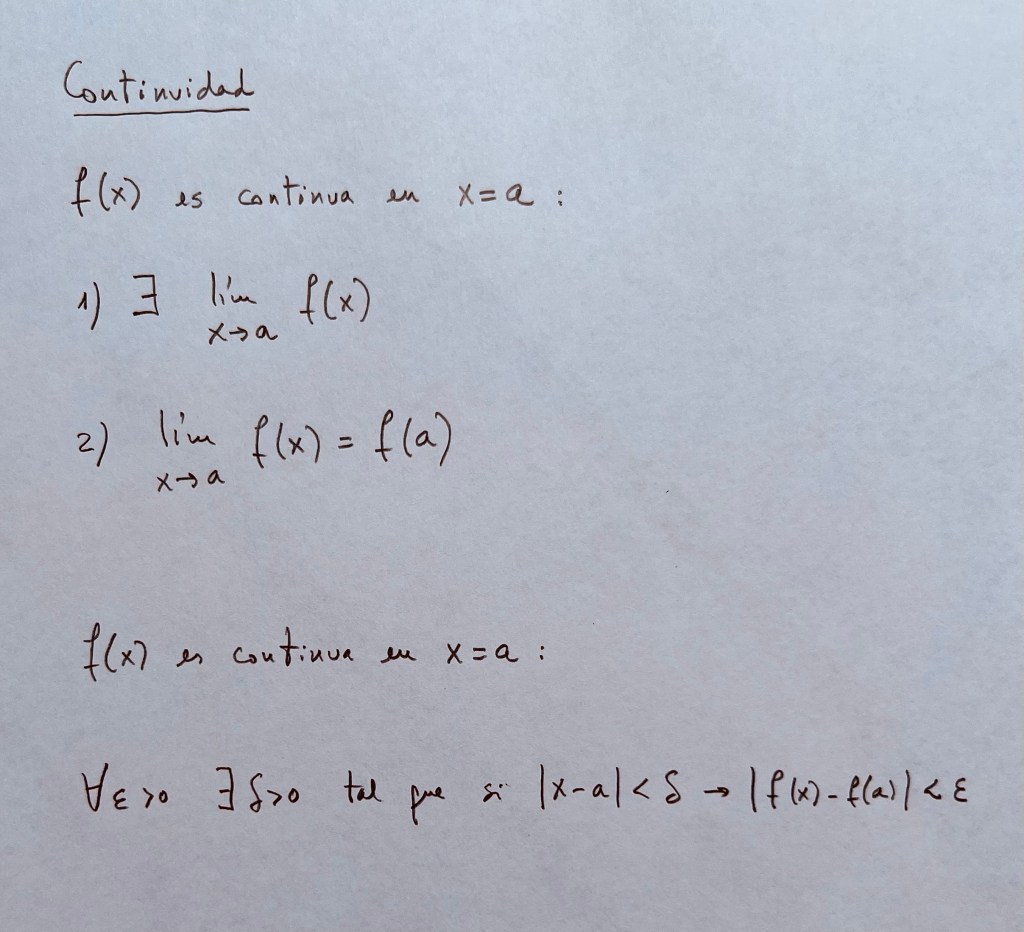 Continuidad
f(x) es continua en x=a :
1) ∃ lím f(x)
x→a
2) lím f(x) = f(a)
x→a
f(x) es continua en x=a :
∀ε>0 ∃δ>0 tal que si |x-a|<δ → |f(x)-f(a)|<ε